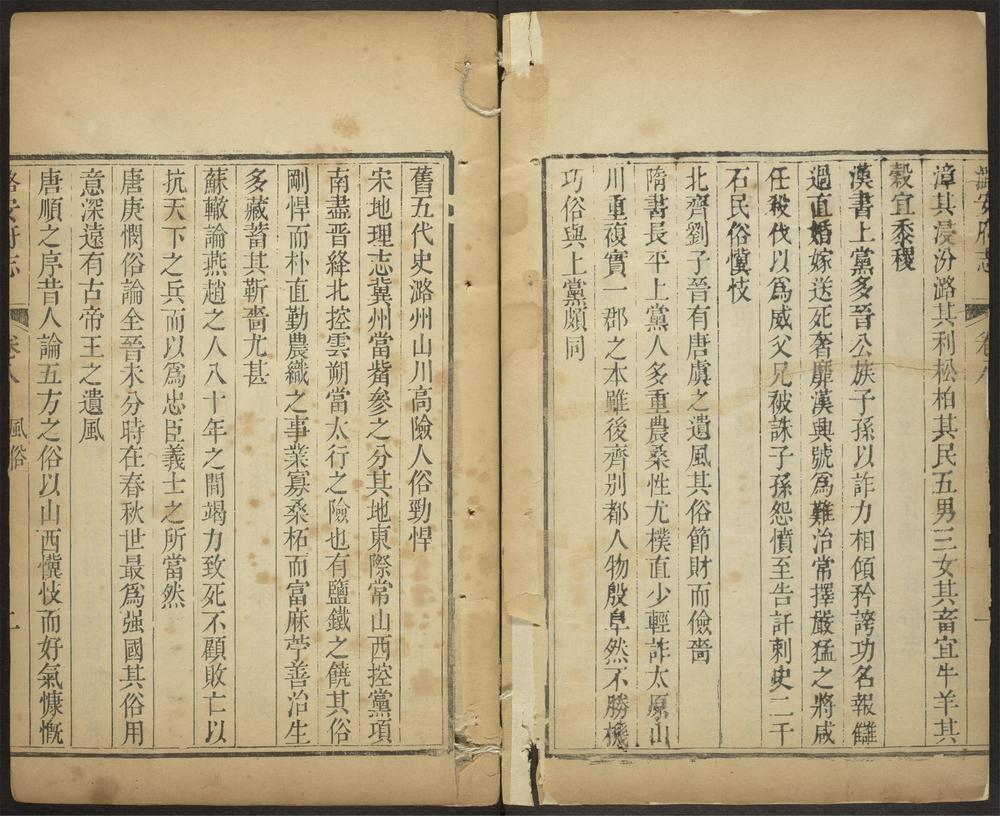 潞安府志
卷八
一
漳其浸汾潞其利松柏其民五男三女其畜宜牛羊其
穀宜黍稷
漢書上黨多晉公族子孫以詐力相傾矜誇功名報讎
過直婚嫁送死奢靡漢興號爲難治常擇嚴猛之將咸
任殺伐以爲威父兄被誅子孫怨憤至告訐刺史二千
石民俗懻忮
北齊劉子晉有唐虞之遺風其俗節財而儉嗇
隋書長平上黨人多重農桑性尤樸直少輕詐太原山
川重複實一郡之本雖後齊别都人物殷阜然不勝機
巧俗與上黨頗同
舊五代史潞州山川高險人俗勁悍
宋地理志冀州當觜參之分其地東際常山西控黨項
南盡晋絳北控雲朔當太行之險也有鹽鐵之饒其俗
剛悍而朴直勤農織之事業寡桑柘而富麻苧善治生
多藏蓄其靳嗇尤甚
蘇轍論燕趙之人八十年之間竭力致死不顧敗亡以
抗天下之兵而以爲忠臣義士之所當然
唐庚憫俗論全晉未分時在春秋世最爲强國其俗用
意深遠有古帝王之遺風
唐順之序昔人論五方之俗以山西懻忮而好氣慷慨
潞安府志
卷八
風俗